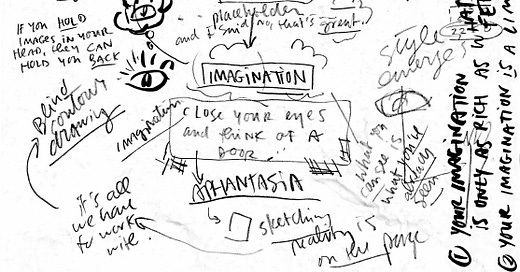 placeholder
and I said no, that's great.
IF YOU HOLD
IMAGES IN YOUR
HEAD, they CAN
HOLD YOU BACK
IMAGINATION
style
emerges
Blind
contour
drawing
imagination
CLOSE YOUR EYES
and think OF A
DOOR
what you
can see is
what you've
already
seen
APHANTASIA
it's all
we have
to work
with!
sketching
reality is
on the page
① YOUR IMAGINATION
IS ONLY AS RICH AS WHAT
② YOUR IMAGINATION IS A